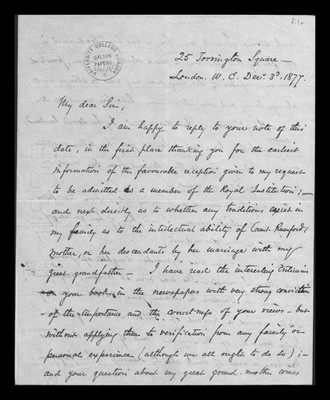 25 Torrington Square —
London. W. C. Decr. 3d. 1877.
My dear Sir,
I am happy to reply to your note of this
date, in the first place thanking you for the earliest
information of the favourable reception given to my request
to be admitted as a member of the Royal Institution; —
and next directly as to whether any traditions exist in
my family as to the intellectual ability of Count Rumford's
mother, or her descendants by her marriage with my
great grandfather — I have read the interesting
your book, in the newspapers with very strong conviction
of the importance and the correctness of your views — but
without applying them to verification from any family or
personal experience (although we all ought to do so); —
and your question about my great grand mother comes
UNIVERSITY COLLEGE LONDON
GALTON
PAPERS